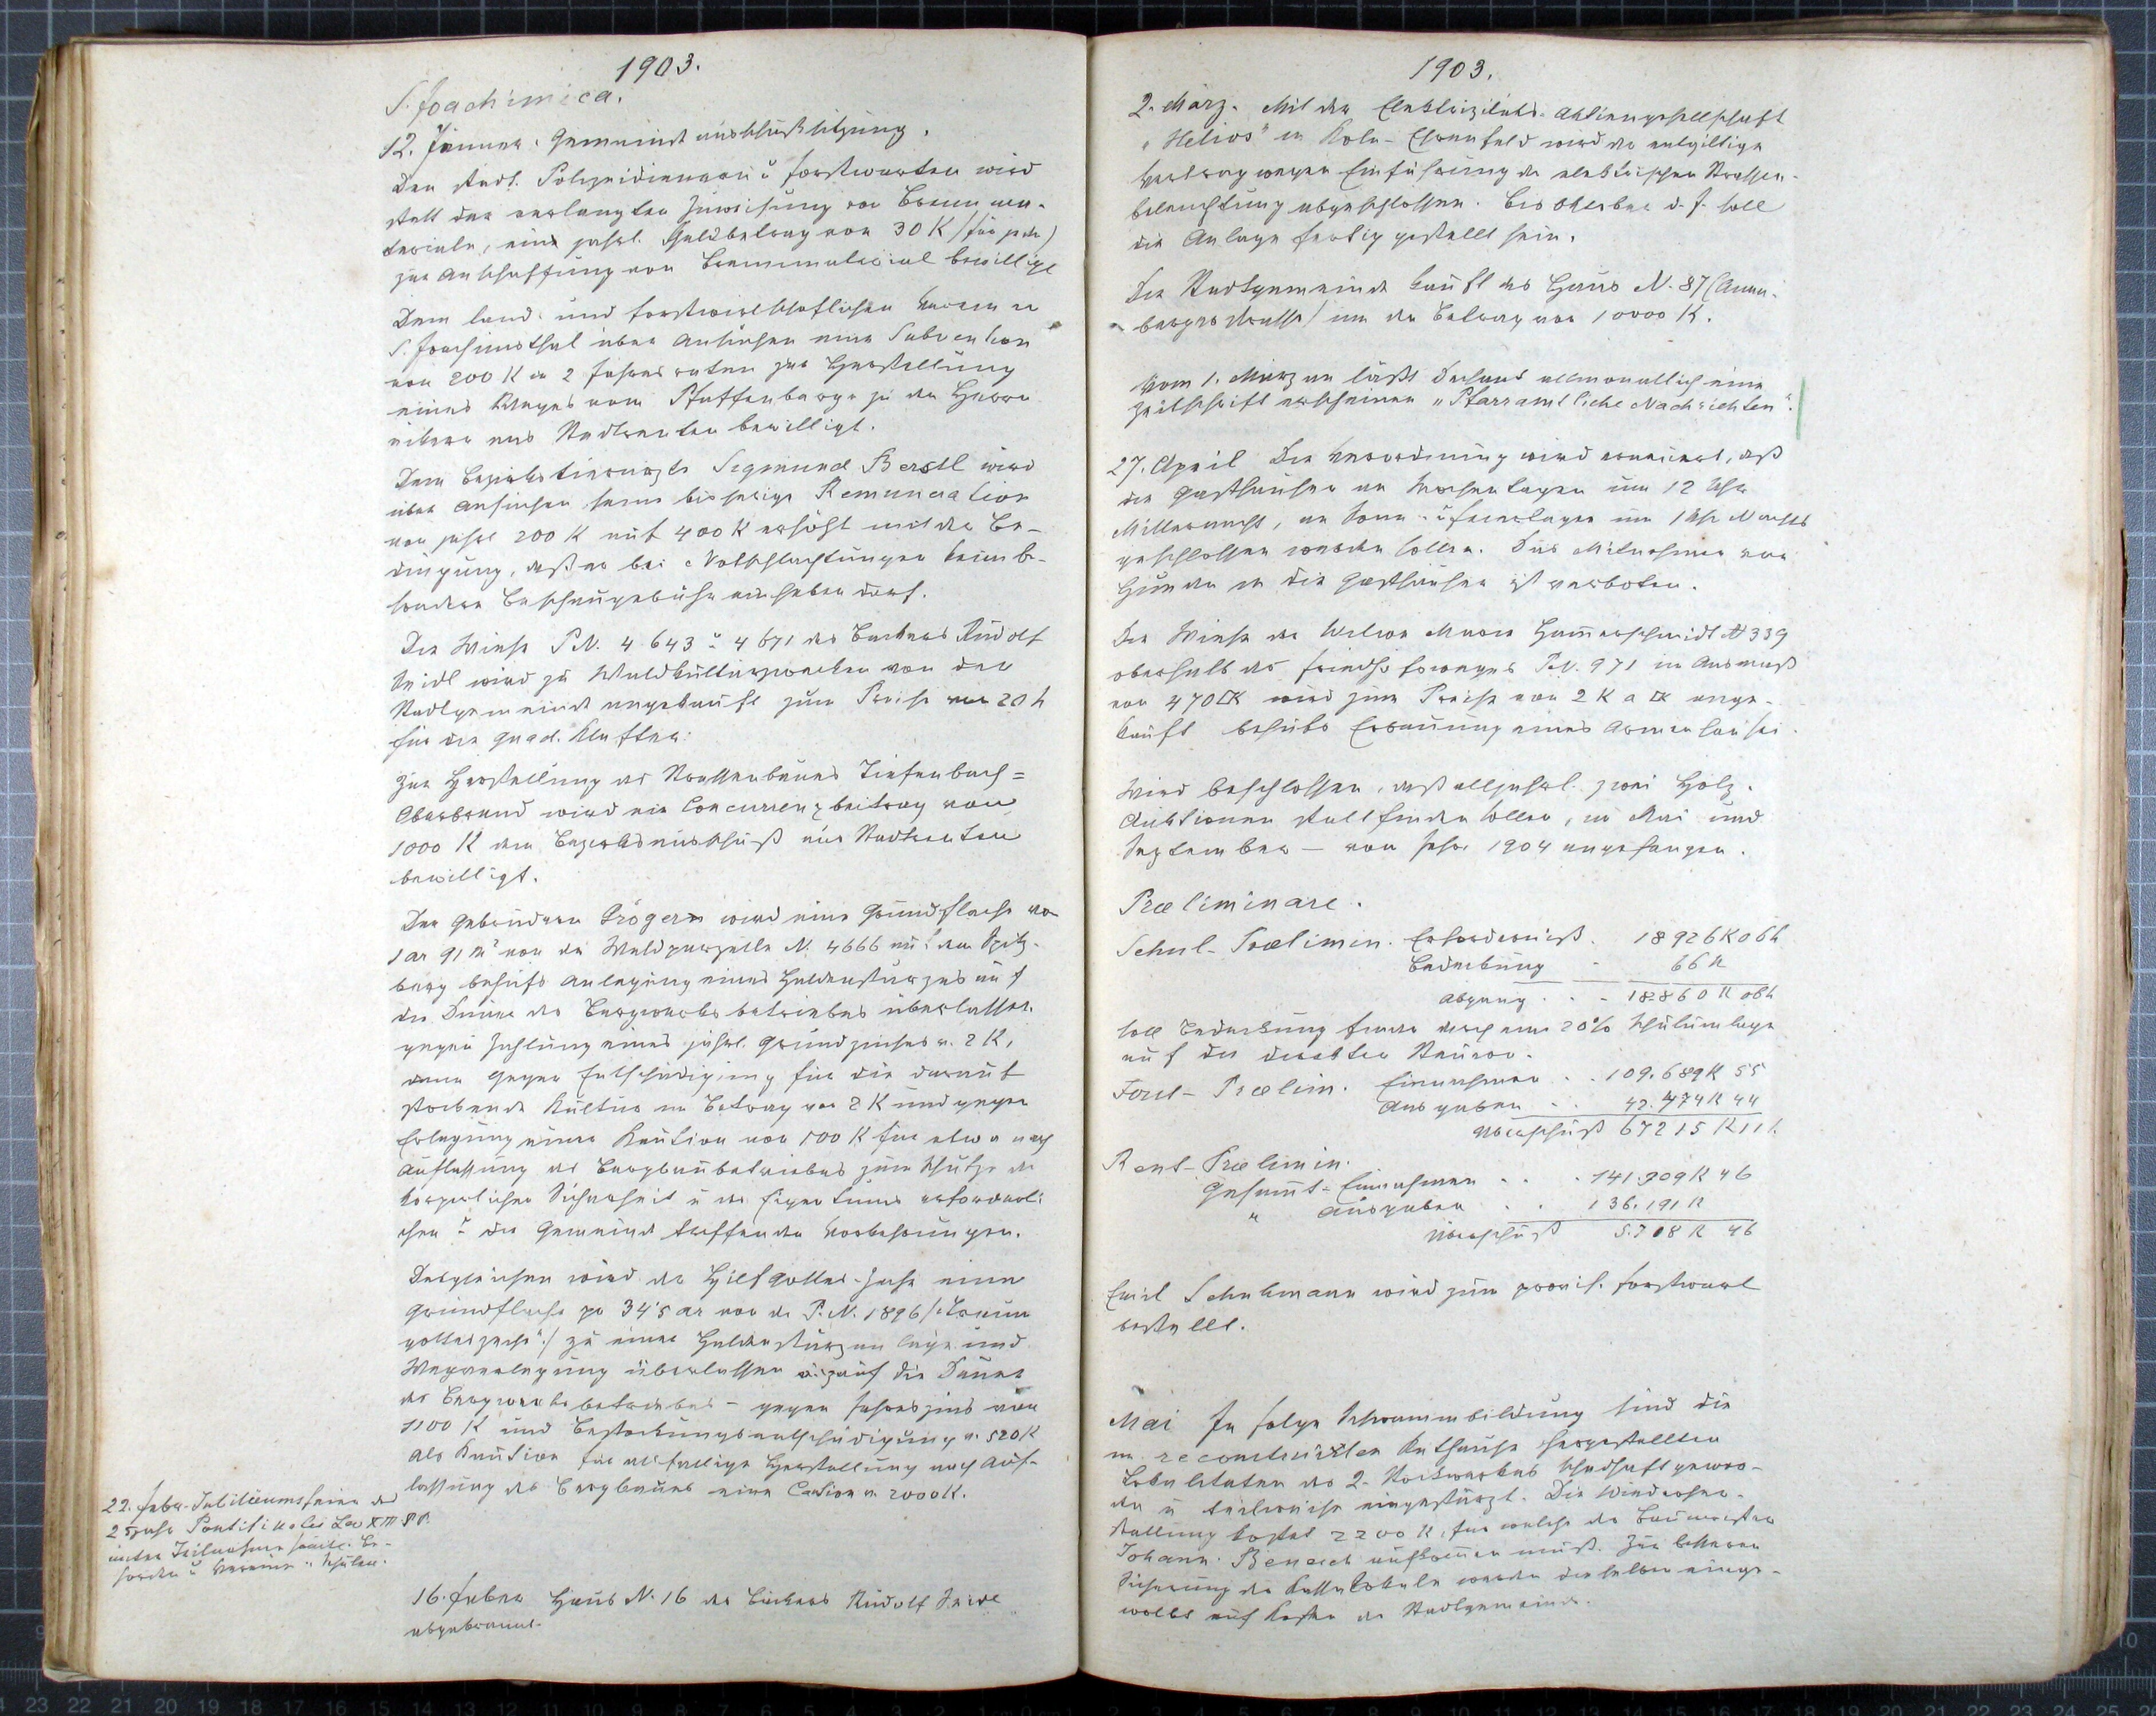 1903.
S. Joachimica.
12. Jänner. Gemeindeausschußsitzung.
Den städt. Polizeidienern u Forstwarten wird
statt der verlangten Zuweisung von Brennma-
teriale, eine jährl. Geldbetrag von 30 K (für jeden)
zur Anschaffung von Brennmaterial bewilligt
Dem land- und forstwirtschaftlichen Verein in
S. Joachimsthal über Ansuchen eine Subvention
von 200 K in 2 Jahresraten zur Herstellung
eines Weges vom Pfaffenberge zu den Herren
äckern aus Stadtrenten bewilligt.
Dem Bezirkstierarzte Sigmund Berstl wird
über Ansuchen seine bisherige Remuneration
von jährl 200 K auf 400 K erhöht mit der Be-
dingung, daß er bei Notschlachtungen keine be-
sondere Beschaugebühr einheben darf.
Die Wiese P.N. 4643 u 4671 des Bäckers Rudolf
Seidl wird zu Waldkulturzwecken von der
Stadtgemeinde angekauft zum Preise von 20 h
für die Quad. Klafter.
Zur Herstellung des Strassenbaues Tiefenbach=
Oberbrand wird ein Concurrenzbeitrag von
1000 K dem Bezirksausschuß aus Stadtrenten
bewilligt.
Den Gebrüdern Trögern wird eine Grundfläche von
1 ar 91 m² von der Waldparzelle N. 4666 auf dem Spitz-
berg behufs Anlegung eines Haldensturzes auf
die Dauer des Bergwerksbetriebes überlassen
gegen Zahlung eines jährl. Grundzinses v. 2 K,
dann gegen Entschädigung für die darauf
stockende Kultur im Betrag von 2 K und gegen
Erlegung einer Kaution von 100 K für etwa nach
Auflassung des Bergbaubetriebes zum Schutze der
körperlichen Sicherheit u des Eigentums erforderli
chen u die Gemeinde treffenden Vorkehrungen.
Desgleichen wird der Hilfgottes-Zeche eine
Grundfläche per 34'5 ar von der P. N. 1896 /:
gotteszeche":/ zu einer Haldensturzanlage und
Wegverlegung überlassen auf die Dauer
des Bergwerksbetriebes - gegen Jahreszins von
1100 K und Bestockungsentschädigung v. 520 K
als Kaution für allfällige Herstellung nach Auf-
lassung des Bergbaues eine Caution v. 2000 K.
22. Febr. Jubiläumsfeier des
25 jähr Pontifikates Leo XIII PP.
unter Teilnahme sämtl. Be-
hörden u Vereine u Schulen.
16. Feber Haus N. 16 des Bäckers Rudolf Seidl
abgebrannt.
1903.
2. März. Mit der Elektrizitäts-Aktiengesellschaft
„Helios" in Köln-Ehrenfeld wird der entgiltige
Vertrag wegen Einführung der elektrischen Strassen-
beleuchtung abgeschlossen. Bis Oktober d. J. soll
die Anlage fertig gestellt sein.
Die Stadtgemeinde kauft das Haus N. 87 (Anna-
bergerstrasse) um den Betrag von 10000 K.
Vom 1. März an läßt Dechant allmonatlich eine
Zeitschrift erscheinen „Pfarramtliche Nachrichten".
27. April Die Verordnung wird erneuert, daß
die Gasthäuser an Wochentagen um 12 Uhr
Mitternacht, an Sonn- u Feiertagen um 1 Uhr Nachts
geschlossen werden sollen. Das Mitnehmen von
Hunden in die Gasthäuser ist verboten.
Die Wiese der Witwe Marie Hammerschmidt N 339
oberhalb des Friedhofsweges P.N. 971 im Ausmaß
von 470 □K wird zum Preise von 2 K a □K ange-
kauft behufs Erbauung eines Armenhauses.
Wird beschlossen, daß alljährl. zwei Holz-
Auktionen stattfinden sollen, im Mai und
September - vom Jahre 1904 angefangen.
Præliminare.
Schul-Prælimin. Erforderniß. 18926 K 06 h
Bedeckung - 66 K
Abgang . . - 18860 K 06 h
soll Bedeckung finden durch eine 20% Schulumlage
auf die direkten Steuern.
Forst-Prælim. Einnahmen . . 109.689 K 55
Ausgaben . . 42.474 K 44
Überschuß 67215 K 11 h
Rent-Prælimin.
Gesammt-Einnahmen . . . 141.909 K 46
" Ausgaben . . 136.191 K
Überschuß 5.708 K 46
Emil Schuhmann wird zum provis. Forstwart
bestellt.
Mai In folge Schwammbildung sind die
im reconstruirten Rathause hergestellten
Lokalitäten des 2. Stockwerkes schadhaft gewor-
den u teilweise eingestürzt. Die Wiederher-
stellung kostet 2200 K, für welche der Baumeister
Johann Benesch aufkommen muß. Zur besseren
Sicherung der Kassalokale werden dieselben einge-
wölbt auf Kosten der Stadtgemeinde.